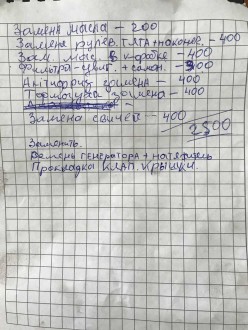 Замена масла — 200
Замена рулев. тяга + наконеч. — 400
Зам. мас. в коробке — 400
Фильтра двиг. + салон. — 300
Антифриз замена — 400
Тормозуха замена — 400
Замена свичей — 400
2500
Заменить.
Ремень генератора + натяжитель
Прокладка клап. крышки.